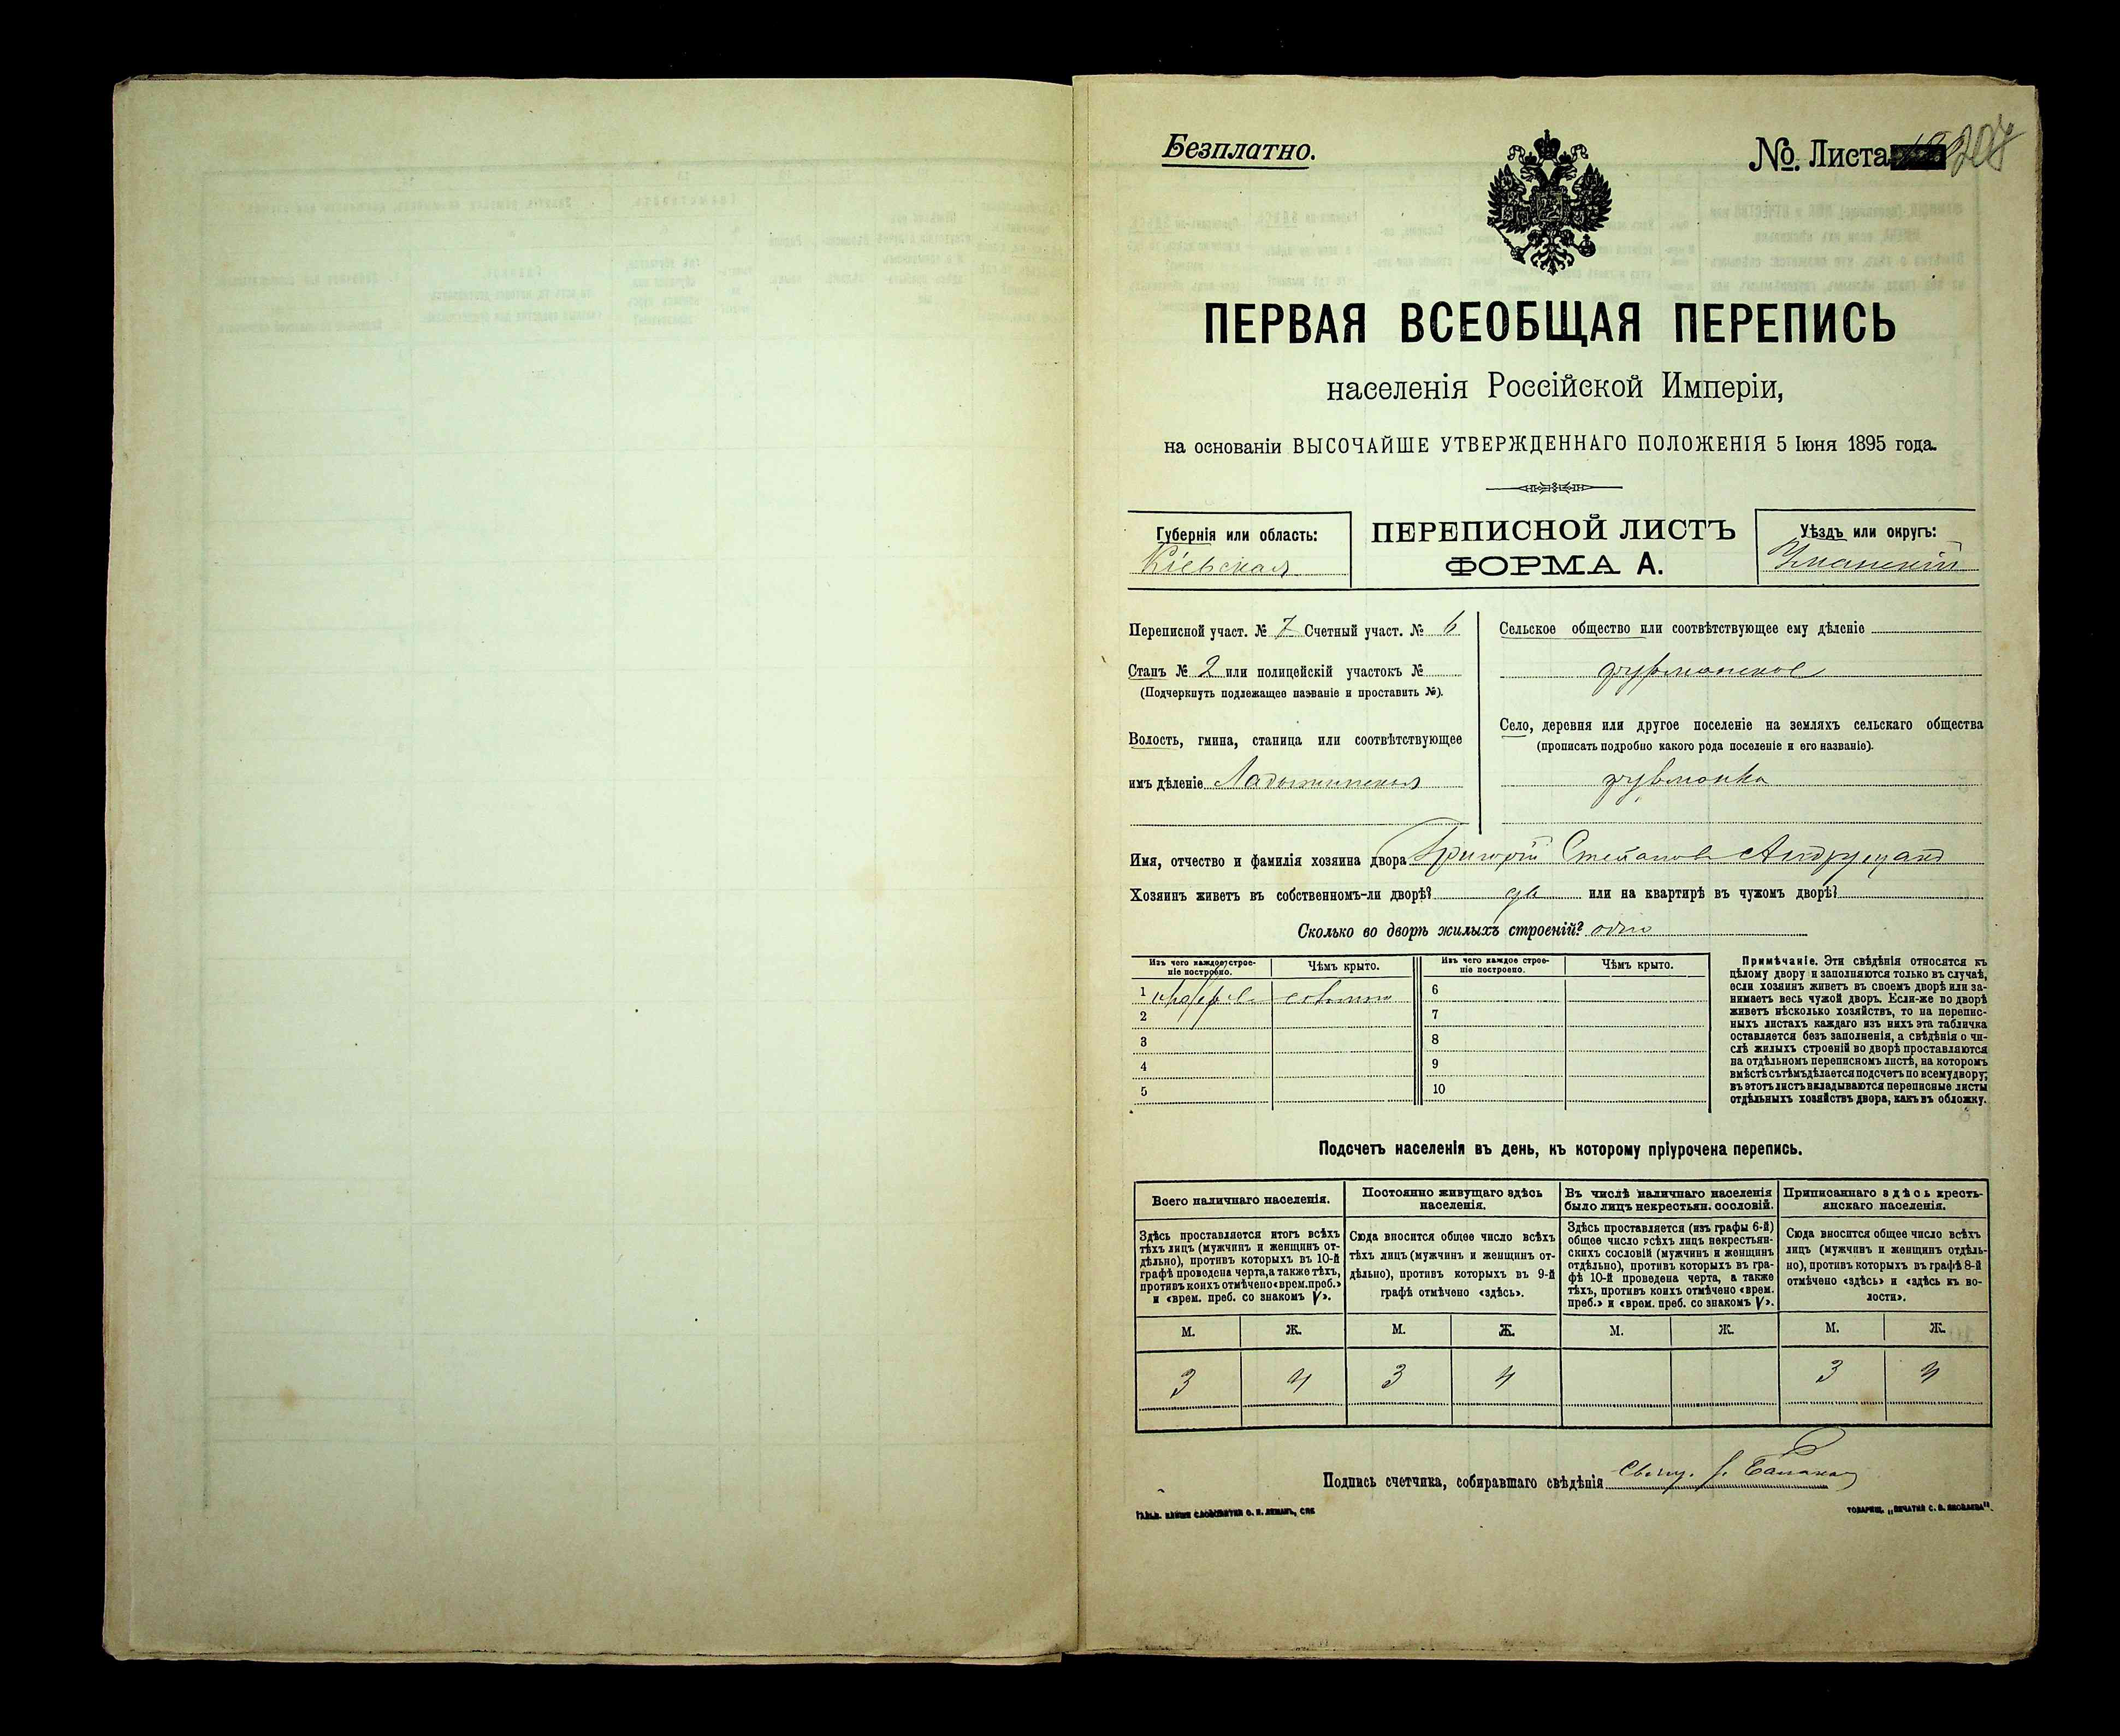 Безплатно.
№. Листа
ПЕРВАЯ ВСЕОБЩАЯ ПЕРЕПИСЬ
населенія Россійской Имперіи,
на основаніи ВЫСОЧАЙШЕ УТВЕРЖДЕННАГО ПОЛОЖЕНІЯ 5 Іюня 1895 года.
Губернія или область:
Кіевская
ПЕРЕПИСНОЙ ЛИСТЪ
ФОРМА А.
Уѣздъ или округъ:
Уманскій
Переписной участ. № 7 Счетный участ. № 6
Станъ № 2 или полицейскій участокъ №
(Подчеркнуть подлежащее названіе и проставить №).
Волость, гмина, станица или соотвѣтствующее
имъ дѣленіе Ладыжинская
Сельское общество или соотвѣтствующее ему дѣленіе
фурманское
Село, деревня или другое поселеніе на земляхъ сельскаго общества
(прописать подробно какого рода поселеніе и его названіе).
фурманка
Имя, отчество и фамилія хозяина двора Григорій Степановъ
Хозяинъ живетъ въ собственномъ-ли дворѣ? или на квартирѣ въ чужомъ дворѣ?
Сколько во дворѣ жилыхъ строеній? одно
Изъ чего каждое строе-
ніе построено.
Чѣмъ крыто.
Изъ чего каждое строе-
ніе построено.
Чѣмъ крыто.
1
2
3
4
5
6
7
8
9
10
Примѣчаніе. Эти свѣдѣнія относятся къ
цѣлому двору и заполняются только въ случаѣ,
если хозяинъ живетъ въ своемъ дворѣ или за-
нимаетъ весь чужой дворъ. Если-же во дворѣ
живетъ нѣсколько хозяйствъ, то на перепис-
ныхъ листахъ каждаго изъ нихъ эта табличка
оставляется безъ заполненія, а свѣдѣнія о чи-
слѣ жилыхъ строеній во дворѣ проставляются
на отдѣльномъ переписномъ листѣ, на которомъ
вмѣстѣ съ тѣмъ дѣлается подсчетъ по всему двору;
въ этотъ листъ вкладываются переписные листы
отдѣльныхъ хозяйствъ двора, какъ въ обложку.
Подсчетъ населенія въ день, къ которому пріурочена перепись.
Всего наличнаго населенія.
Постоянно живущаго здѣсь
населенія.
Въ числѣ наличнаго населенія
было лицъ некрестьян. сословій.
Приписаннаго здѣсь кресть-
янскаго населенія.
Здѣсь проставляется итогъ всѣхъ
тѣхъ лицъ (мужчинъ и женщинъ от-
дѣльно), противъ которыхъ въ 10-й
графѣ проведена черта, а также тѣхъ,
противъ коихъ отмѣчено «врем. преб.»
и «врем. преб. со знакомъ V».
Сюда вносится общее число всѣхъ
тѣхъ лицъ (мужчинъ и женщинъ от-
дѣльно), противъ которыхъ въ 9-й
графѣ отмѣчено «здѣсь».
Здѣсь проставляется (изъ графы 6-й)
общее число всѣхъ лицъ некрестьян-
скихъ сословій (мужчинъ и женщинъ
отдѣльно), противъ которыхъ въ гра-
фѣ 10-й проведена черта, а также
тѣхъ, противъ коихъ отмѣчено «врем.
преб.» и «врем. преб. со знакомъ V».
Сюда вносится общее число всѣхъ
лицъ (мужчинъ и женщинъ отдѣль-
но), противъ которыхъ въ графѣ 8-й
отмѣчено «здѣсь» и «здѣсь къ во-
лости».
М. Ж. М. Ж. М. Ж. М. Ж.
3 4 3 4 3 4
Подпись счетчика, собиравшаго свѣдѣнія